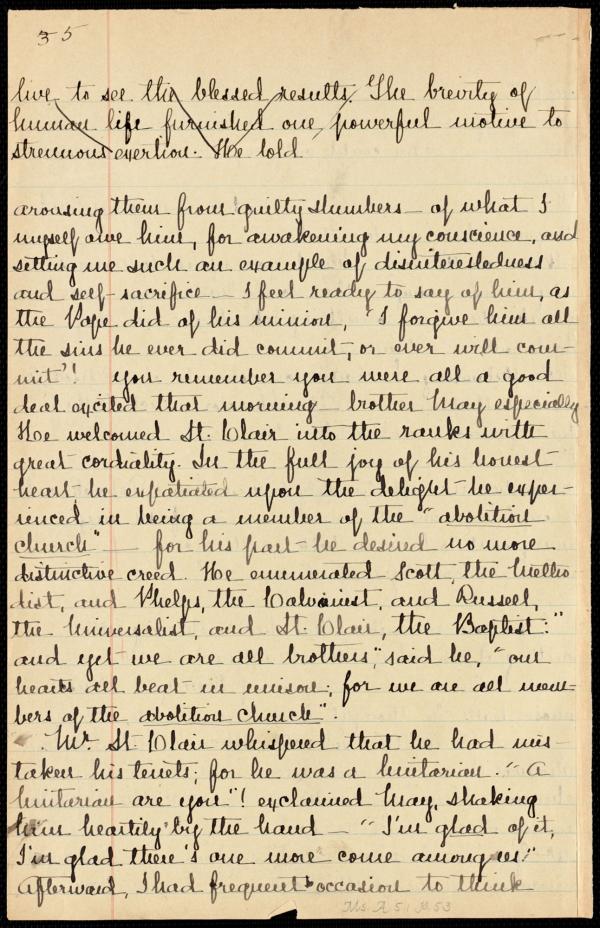 35
live to see the blessed results. The brevity of
human life furnished one powerful motive to
strenuous exertion. He told
arousing them from guilty slumbers — of what I
myself owe him, for awakening my conscience, and
setting me such an example of disinterestedness
and self-sacrifice — I feel ready to say of him, as
the Pope did of his minion, "I forgive him all
the sins he ever did commit, or ever will com-
mit"! You remember you were all a good
deal excited that morning — brother May especially
He welcomed St. Clair into the ranks with
great cordiality. In the full joy of his honest
heart he expatiated upon the delight he exper-
ienced in being a member of the "abolition
church" — for his part he desired no more
distinctive creed. He enumerated Scott, the Metho
dist, and Phelps, the Calvinist, and Russell,
the Universalist, and St. Clair, the Baptist:"
and yet we are all brothers," said he, "our
hearts all beat in unison; for we are all mem-
bers of the abolition church".
Mr. St. Clair whispered that he had mis-
taken his tenets; for he was a Unitarian. "A
Unitarian are you"! exclaimed May, shaking
him heartily by the hand — "I'm glad of it,
I'm glad there's one more come among us!"
Afterward, I had frequent occasion to think
Ms. A. 5.1